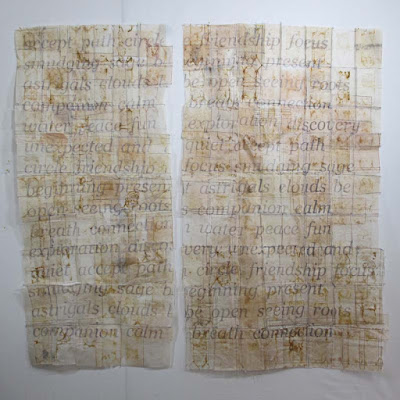 accept path circle
smudging sage b
ast rituals clouds b
companion calm
water peace fun
unexpected and
circle friendship
beginning present
open seeing roots
breath connection
exploration discov
quiet accept path
smudging sage b
ast rituals clouds
companion calm
friendship focus
beginning present
be open seeing roots
breath connection
exploration discovery
quiet accept path
focus smudging sage
t rituals clouds be
companion calm
water peace fun
very unexpected and
circle friendship focus
beginning present
be open seeing roots
breath connection